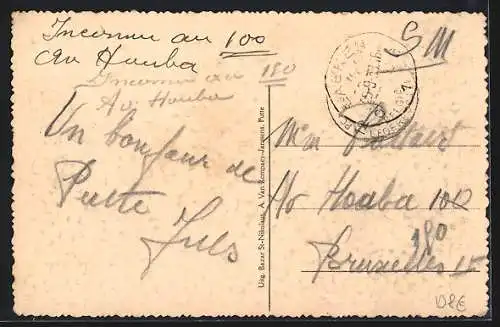 Inconnu au 100
Av Houba
Inconnu au 180
Av. Houba
Un bonjour de
Putte
Juls
Uitg. Bazar St-Nikolaus, A. Van Rompaey-Janssens, Putte
S M
Mme
Av Houba 100
180
Bruxelles II